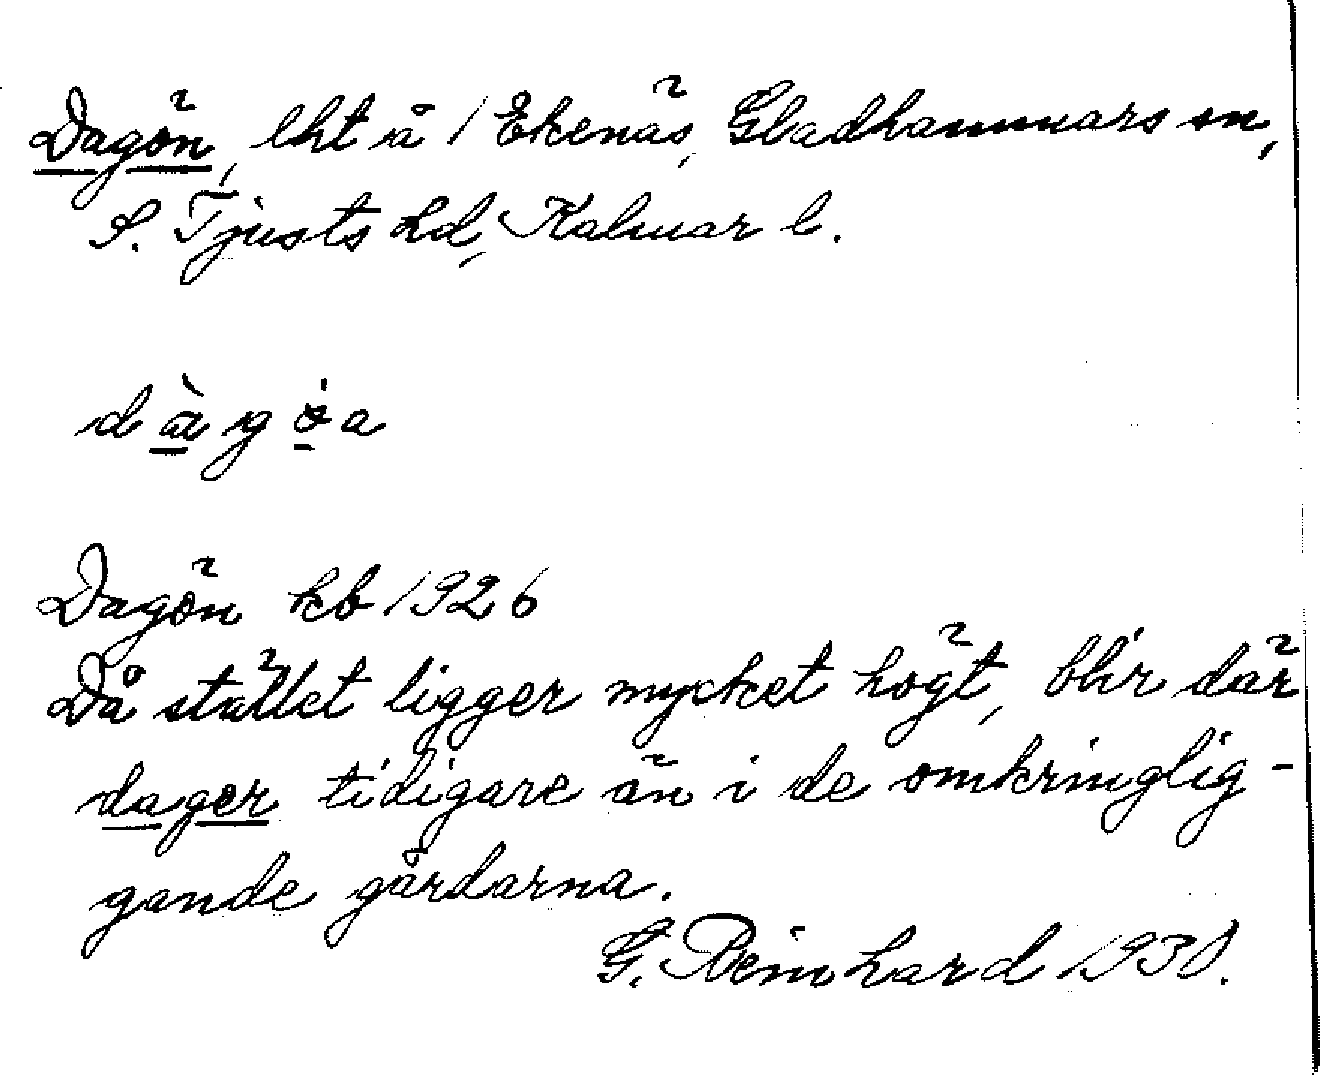 Dagön, lht å 1 Ekenäs, Gladhammars sn,
S. Tjusts hd, Kalmar l.
dàgöa
Dagön kb 1926
Då stället ligger mycket högt, blir där
dager tidigare än i de omkringlig-
gande gårdarna.
G. Reinhard